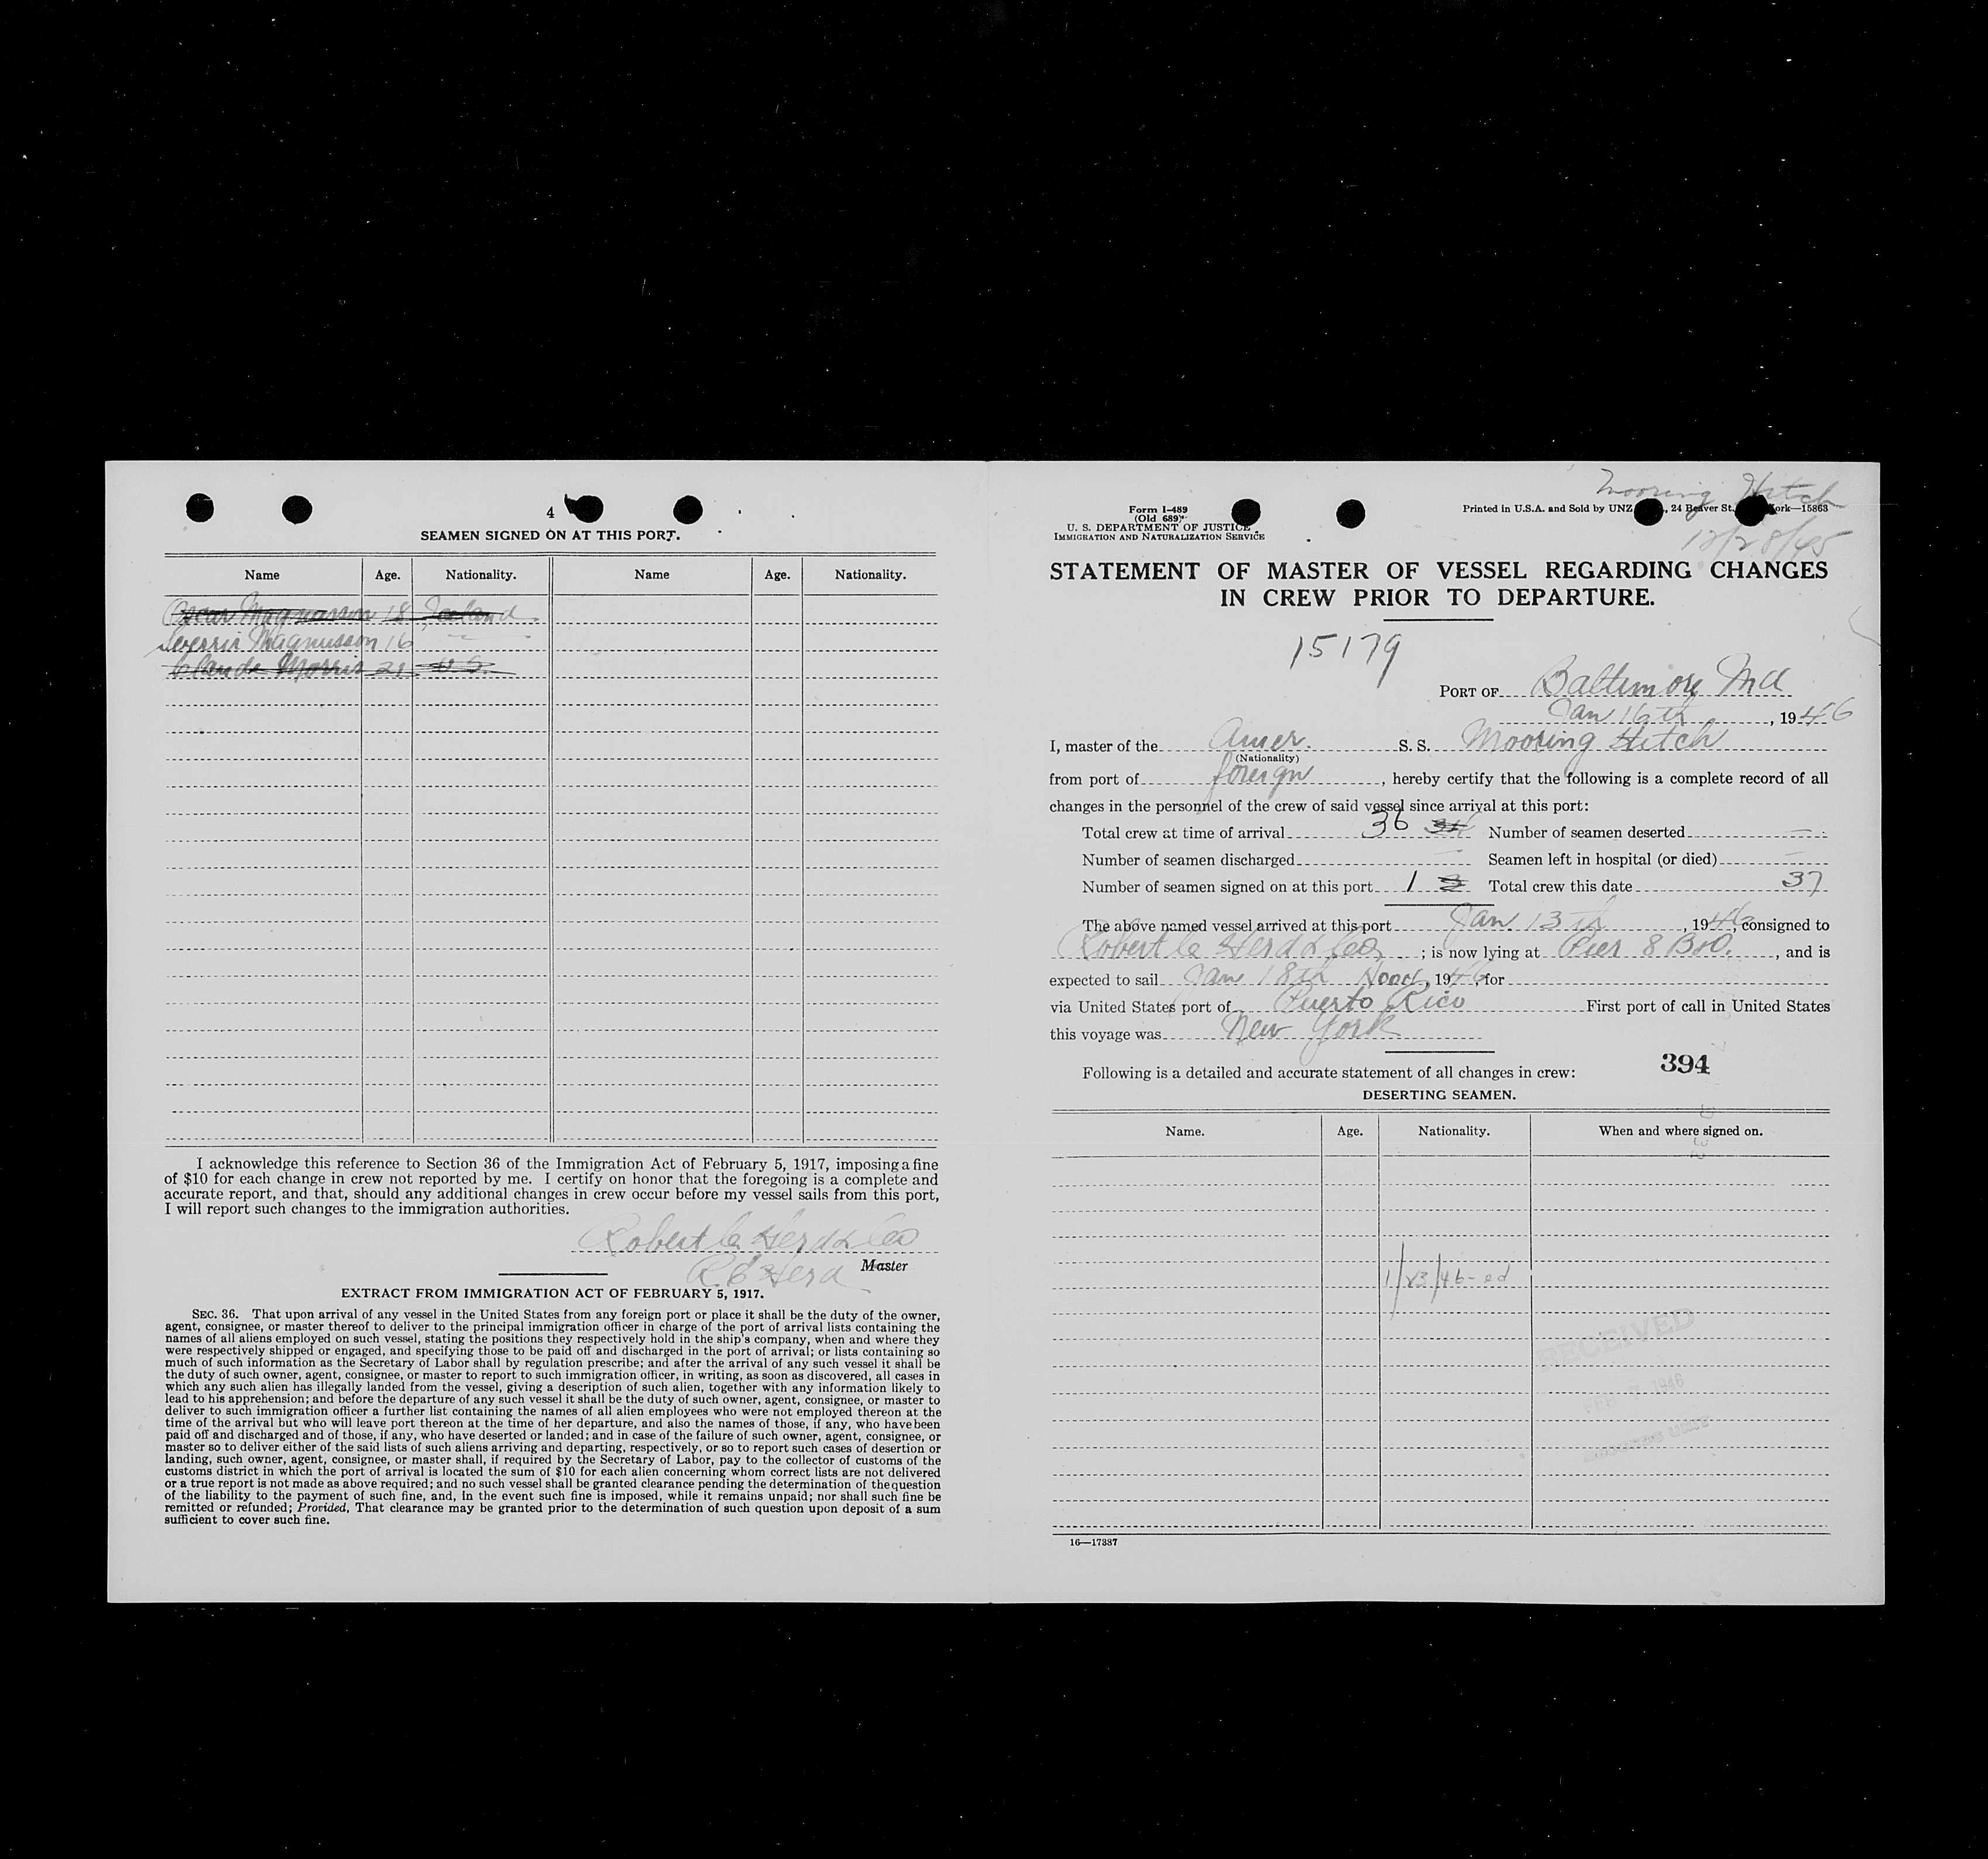 4
SEAMEN SIGNED ON AT THIS PORT.
Name Age. Nationality. Name Age. Nationality.
Oscar Magnusson 18 Iceland
Sverrir Magnusson 16 — —
Claude Morris 21 U.S.
I acknowledge this reference to Section 36 of the Immigration Act of February 5, 1917, imposing a fine
of $10 for each change in crew not reported by me. I certify on honor that the foregoing is a complete and
accurate report, and that, should any additional changes in crew occur before my vessel sails from this port,
I will report such changes to the immigration authorities.
Robert C Herd & Co
R C Herd Master
EXTRACT FROM IMMIGRATION ACT OF FEBRUARY 5, 1917.
SEC. 36. That upon arrival of any vessel in the United States from any foreign port or place it shall be the duty of the owner,
agent, consignee, or master thereof to deliver to the principal immigration officer in charge of the port of arrival lists containing the
names of all aliens employed on such vessel, stating the positions they respectively hold in the ship's company, when and where they
were respectively shipped or engaged, and specifying those to be paid off and discharged in the port of arrival; or lists containing so
much of such information as the Secretary of Labor shall by regulation prescribe; and after the arrival of any such vessel it shall be
the duty of such owner, agent, consignee, or master to report to such immigration officer, in writing, as soon as discovered, all cases in
which any such alien has illegally landed from the vessel, giving a description of such alien, together with any information likely to
lead to his apprehension; and before the departure of any such vessel it shall be the duty of such owner, agent, consignee, or master to
deliver to such immigration officer a further list containing the names of all alien employees who were not employed thereon at the
time of the arrival but who will leave port thereon at the time of her departure, and also the names of those, if any, who have been
paid off and discharged and of those, if any, who have deserted or landed; and in case of the failure of such owner, agent, consignee, or
master so to deliver either of the said lists of such aliens arriving and departing, respectively, or so to report such cases of desertion or
landing, such owner, agent, consignee, or master shall, if required by the Secretary of Labor, pay to the collector of customs of the
customs district in which the port of arrival is located the sum of $10 for each alien concerning whom correct lists are not delivered
or a true report is not made as above required; and no such vessel shall be granted clearance pending the determination of the question
of the liability to the payment of such fine, and, in the event such fine is imposed, while it remains unpaid; nor shall such fine be
remitted or refunded; Provided, That clearance may be granted prior to the determination of such question upon deposit of a sum
sufficient to cover such fine.
Mooring Hitch
12/28/45
Form I-489
(Old 689)
U. S. DEPARTMENT OF JUSTICE
IMMIGRATION AND NATURALIZATION SERVICE
Printed in U.S.A. and Sold by UNZ , 24 Beaver St. ork—15863
STATEMENT OF MASTER OF VESSEL REGARDING CHANGES
IN CREW PRIOR TO DEPARTURE.
15179
PORT OF Baltimore Md
Jan 16th, 1946
I, master of the Amer. S. S. Mooring Hitch
(Nationality)
from port of foreign, hereby certify that the following is a complete record of all
changes in the personnel of the crew of said vessel since arrival at this port:
Total crew at time of arrival 36 34 Number of seamen deserted —
Number of seamen discharged — Seamen left in hospital (or died) —
Number of seamen signed on at this port 1 3 Total crew this date 37
The above named vessel arrived at this port Jan 13th, 1946, consigned to
Robert C Herd & Co; is now lying at Pier 8 B&O., and is
expected to sail Jan 18th Noon, 1946, for
via United States port of Puerto Rico First port of call in United States
this voyage was New York
Following is a detailed and accurate statement of all changes in crew: 394
DESERTING SEAMEN.
Name. Age. Nationality. When and where signed on.
1/23/46-ed
RECEIVED
FEB 1946
16—17387